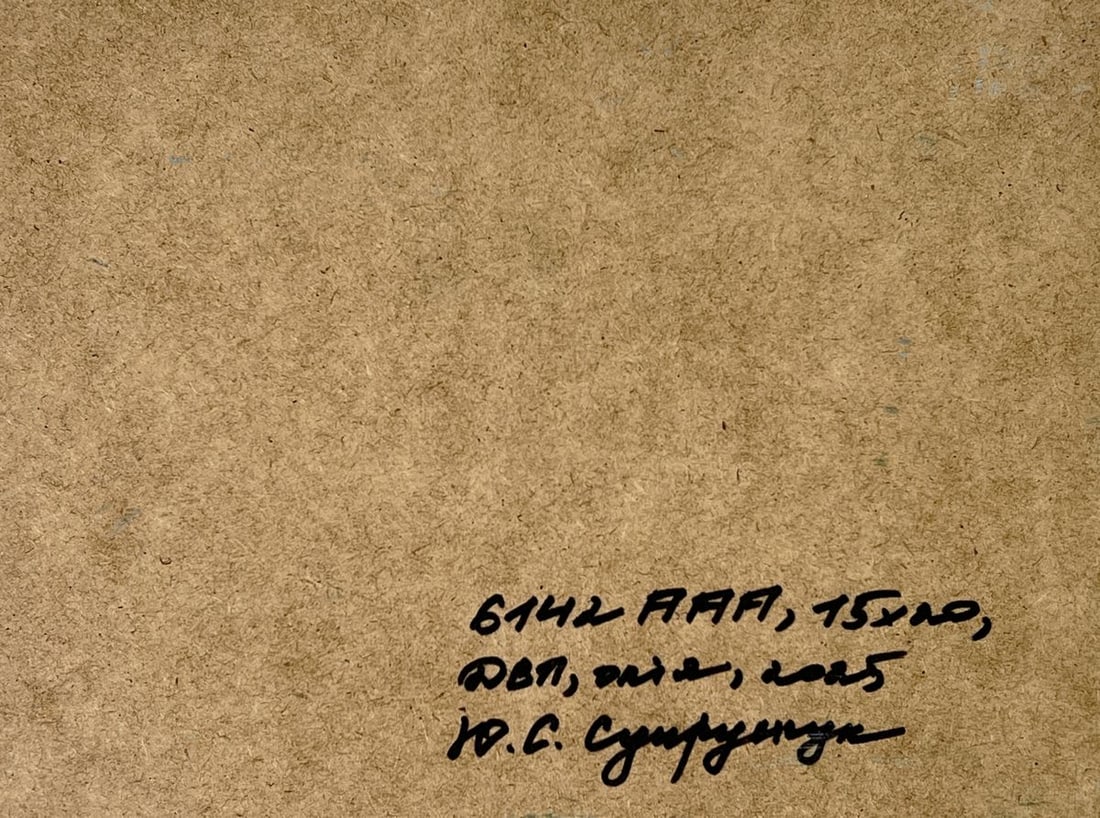 6142 ААА, 15х20,
ДВП, олія, 2025
Ю.С. Супрунчук